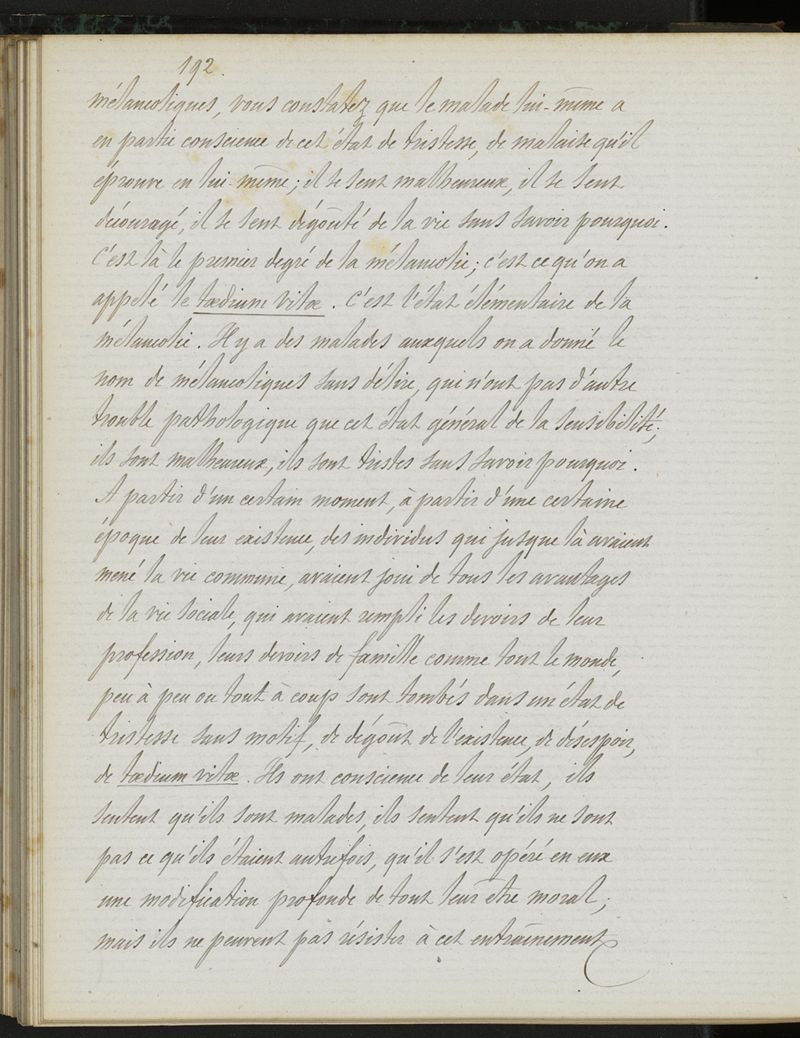 192.
mélancoliques, vous constatez que le malade lui-même a
en partie conscience de cet état de tristesse, de malaise qu'il
éprouve en lui-même; il se sent malheureux, il se sent
découragé, il se sent dégoûté de la vie sans savoir pourquoi.
C'est là le premier degré de la mélancolie; c'est ce qu'on a
appelé le tœdium vitœ. C'est l'état élémentaire de la
mélancolie. Il y a des malades auxquels on a donné le
nom de mélancoliques sans délire, qui n'ont pas d'autre
trouble pathologique que cet état général de la sensibilité;
ils sont malheureux, ils sont tristes sans savoir pourquoi.
A partir d'un certain moment, à partir d'une certaine
époque de leur existence, des individus qui jusque là avaient
mené la vie commune, avaient joui de tous les avantages
de la vie sociale, qui avaient rempli les devoirs de leur
profession, leurs devoirs de famille comme tout le monde,
peu à peu ou tout à coup sont tombés dans un état de
tristesse sans motif, de dégoût de l'existence, de désespoir,
de tœdium vitœ. Ils ont conscience de leur état, ils
sentent qu'ils sont malades, ils sentent qu'ils ne sont
pas ce qu'ils étaient autrefois, qu'il s'est opéré en eux
une modification profonde de tout leur être moral;
mais ils ne peuvent pas résister à cet entraînement